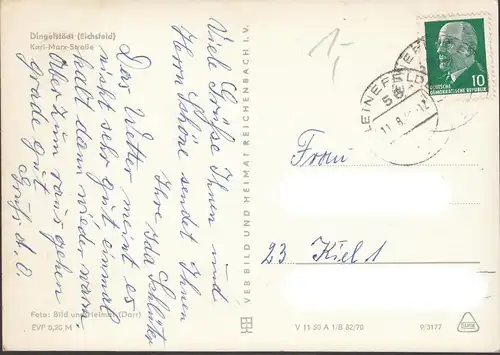 Dingelstädt (Eichsfeld)
Karl-Marx-Straße
Viele Grüße Ihnen und
Herrn Schöne sendet Ihnen
Ihre Ida Schlüter
Das Wetter meint es
nicht sehr gut einmal
kalt dann wieder warm.
Aber zum raus gehen
grade gut
Gruß d. O.
Foto: Bild und Heimat (Darr)
EVP 0,20 M
VEB BILD UND HEIMAT REICHENBACH I. V.
1,-
LEINEFELDE
11.8.
10
DEUTSCHE
DEMOKRATISCHE REPUBLIK
Frau
23 Kiel 1
V 11 50 A 1/B 82/70
9/3177